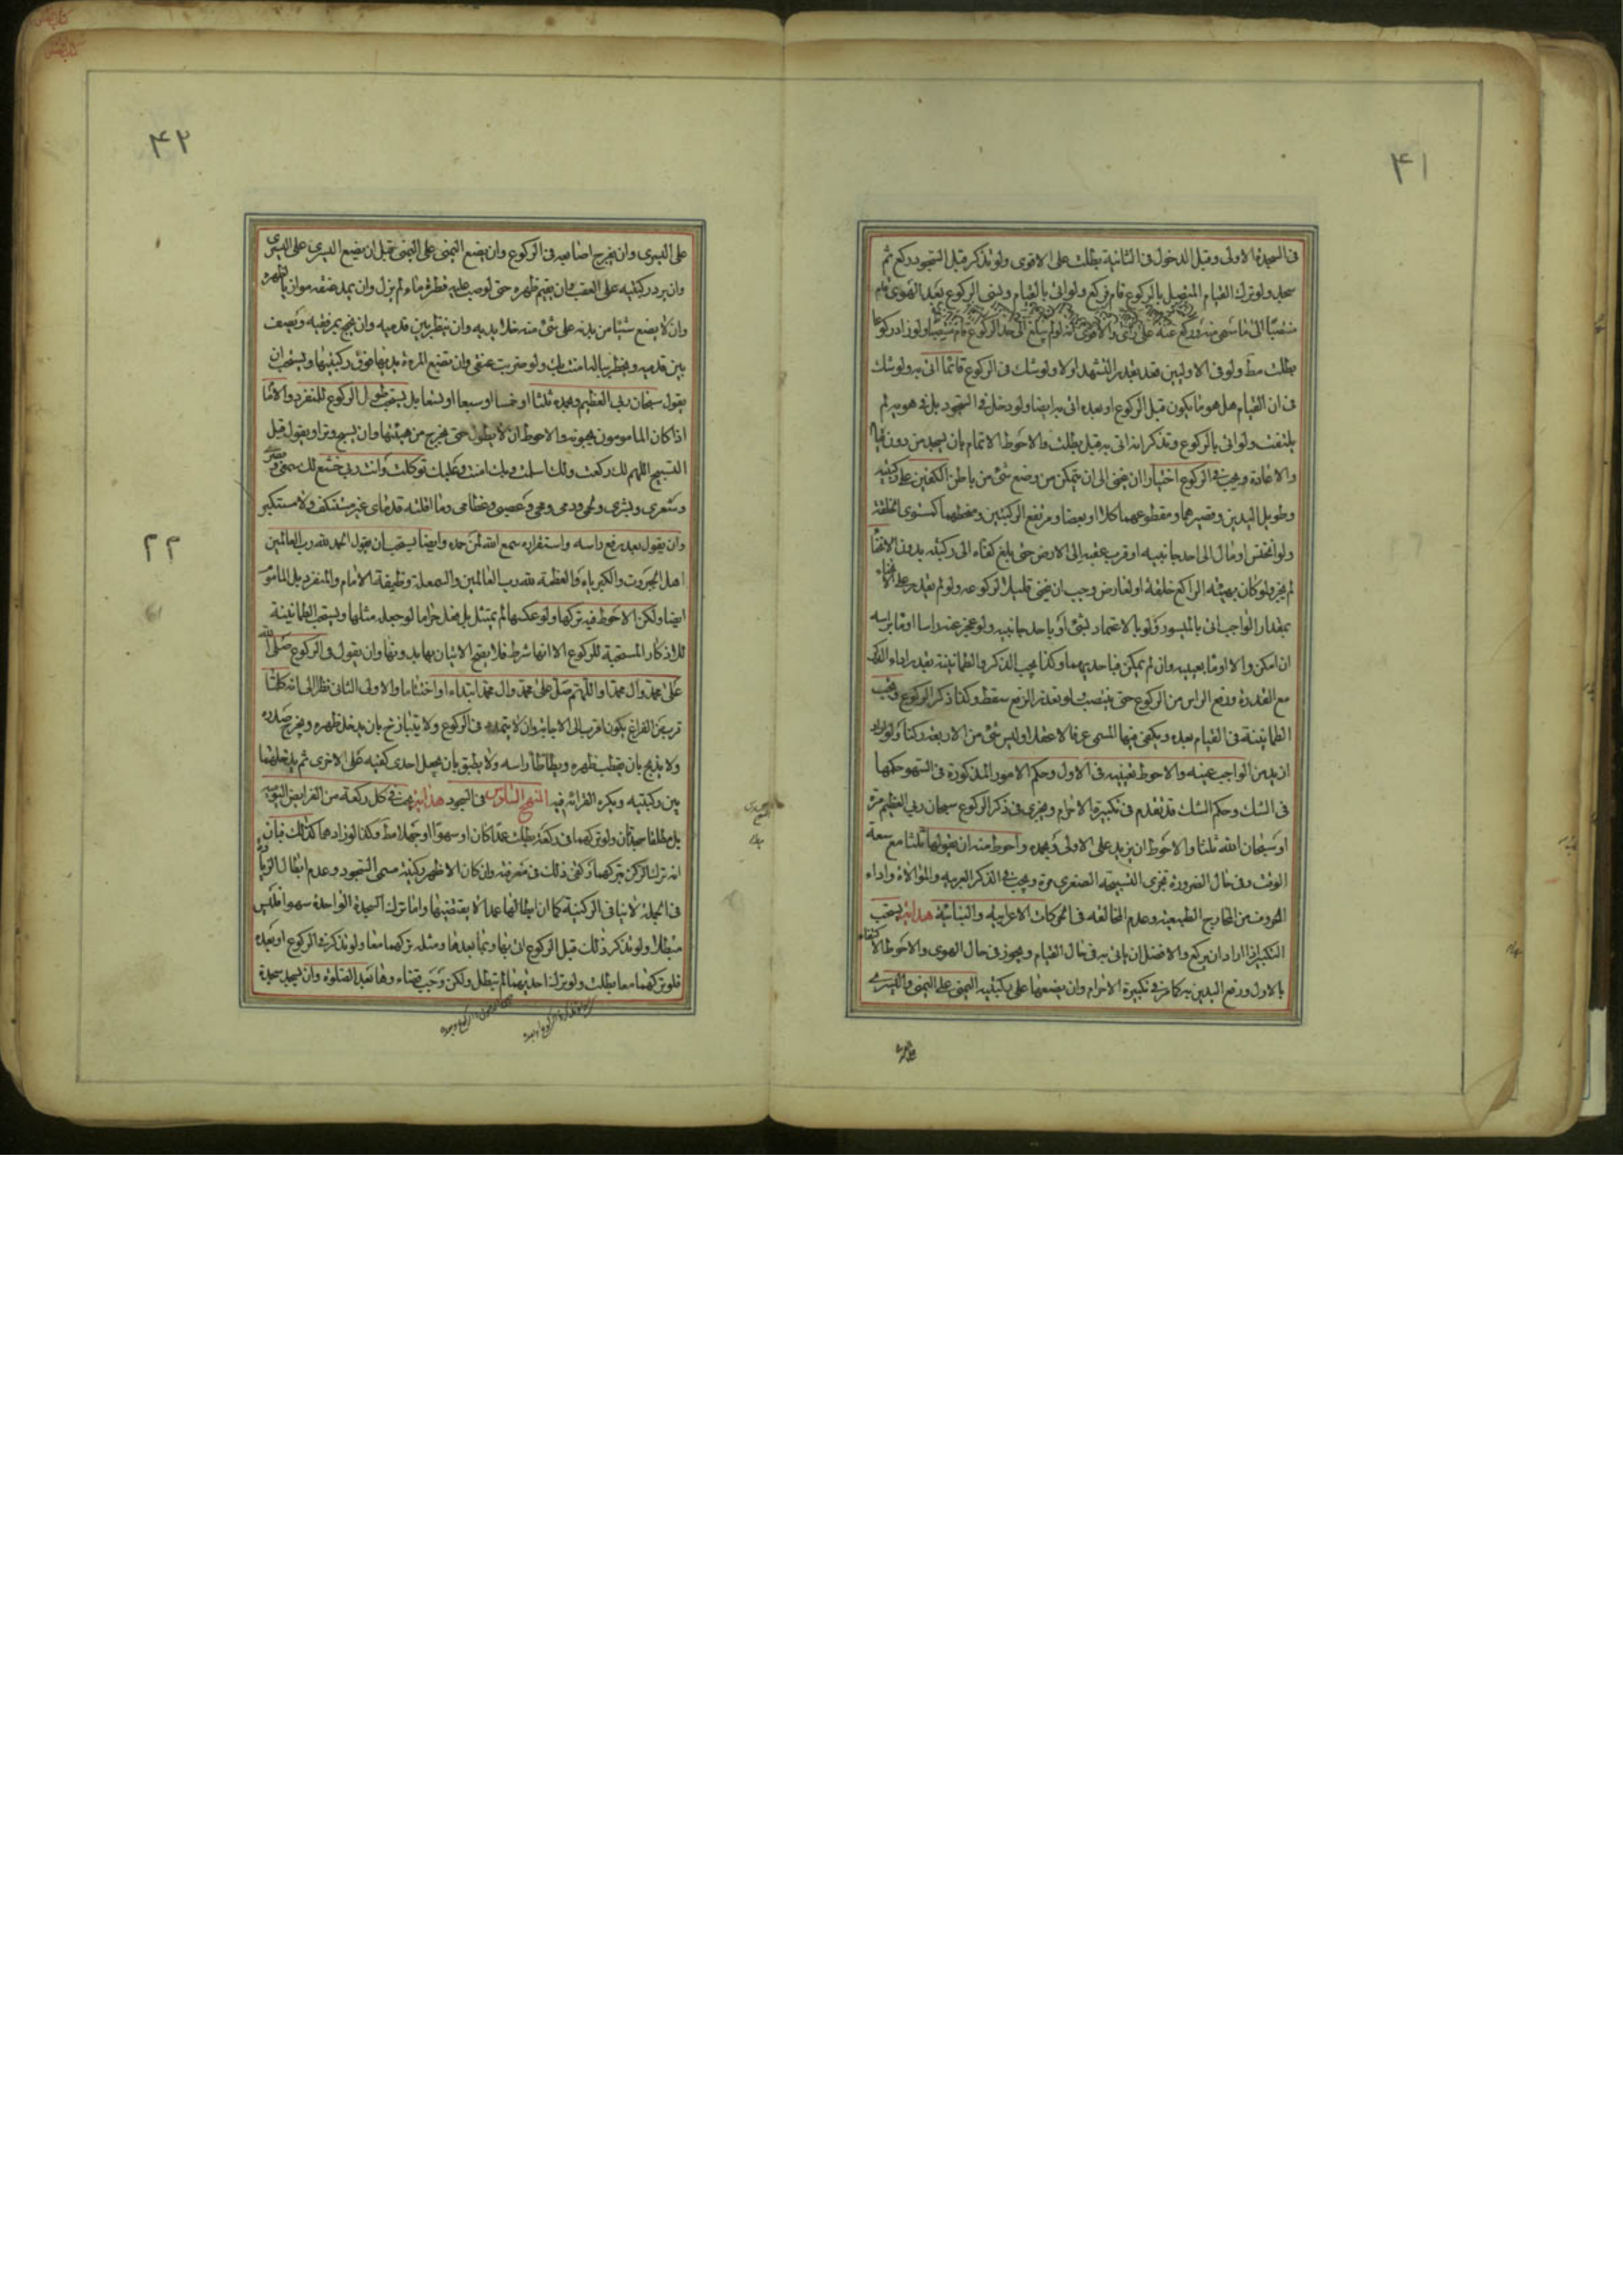 ۴۱
فی السجدة الاولی وقبل الدخول فی الثانیة بطلت علی الاقوی ولو تذکر قبل السجود رکع ثم
سجد ولو ترک القیام المتصل بالرکوع قام فرکع ولو اتی بالقیام ونسی الرکوع بعد الهوی قام
منتصبا الی ورکع عنه علی رای والاقوی انه لو لم یبلغ الی حد الرکوع قام ولو زاد رکوعا
بطلت مط ولو فی الاولیین فعد بقدر التشهد اولا ولو شک فی الرکوع قائما اتی به ولو شک
فی ان القیام هل هو ما یکون قبل الرکوع او بعده اتی به ایضا ولو دخل فی السجود بل فی هویه لم
یلتفت ولو اتی بالرکوع وتذکر انه اتی به قبل بطلت والاحوط الاتمام بان یسجد من دون
والاعادة ویجب فی الرکوع اختیارا ان ینحنی الی ان یتمکن من وضع شئ من باطن الکفین علی رکبتیه
وطویل الیدین وقصیرهما ومقطوعهما کلا او بعضا ومرتفع الرکبتین کمستوی الخلقة
ولو انخنس او مال الی احد جانبیه او قرب عقبه الی الارض حتی بلغ کفاه الی رکبتیه بدون الانحناء
لم یجز ولو کان بهیئة الراکع خلقة او لعارض وجب ان ینحنی قلیلا لرکوعه ولو لم یقدر علی الانحناء
بمقدار الواجب اتی بالمیسور ولو بالاعتماد بشئ او باحد جانبیه ولو عجز عنه راسا اومأ براسه
ان امکن والا اومأ بعینیه وان لم یمکن فباحدیهما وکذا یجب الذکر والطمانینة بقدر اداء الذکر
مع القدرة ورفع الراس من الرکوع حتی ینتصب ولو تعذر الرفع سقط وکذا ذکر الرکوع ویجب
الطمانینة فی القیام بعده ویکفی فیها المسمی عرفا لا عقلا ولیس شئ من الاربعة رکنا ولو زاد
ازید من الواجب عینه والاحوط تعیینه فی الاول وحکم الامور المذکورة فی السهو حکمها
فی الشک وحکم الشک قد تقدم فی تکبیرة الاحرام ویجزی فی ذکر الرکوع سبحان ربی العظیم مرة
او سبحان الله ثلثا والاحوط ان یزید علی الاولی وبحمده واحوط منه ان یقولها ثلثا مع سعة
الوقت وفی حال الضرورة تجزی التسبیحة الصغری مرة ویجب فی الذکر العربیة والموالاة واداء
الحروف من المخارج الطبیعیة وعدم المخالفة فی الحرکات الاعرابیة والبنائیة هدایة یستحب
التکبیر اذا اراد ان یرکع والافضل ان یاتی به فی حال القیام ویجوز فی حال الهوی والاحوط الاکتفاء
بالاول ورفع الیدین به کما مر فی تکبیرة الاحرام وان یضعهما علی رکبتیه الیمنی علی الیمنی والیسری
۴۲
علی الیسری وان یفرج اصابعه فی الرکوع وان یضع الیمنی علی الیمنی قبل ان یضع الیسری علی الیسری
وان یرد رکبتیه علی العقب وان یقیم ظهره حتی لو صب علیه قطرة ماء لم یزل وان یمد عنقه موازیا لظهره
وان لا یضع شیئا من بدنه علی شئ منه خلا یدیه وان ینظر بین قدمیه وان یجنح بمرفقیه ویصف
بین قدمیه ویخطر بباله امنت بک ولو ضربت عنقی وان تضع المرءة یدیها فوق رکبتیها ویستحب ان
یقول سبحان ربی العظیم وبحمده ثلثا او خمسا او سبعا او تسعا بل یستحب طول الرکوع للمنفرد والامام
اذا کان المامومون یحبونه والاحوط ان لا یطول حتی یخرج من هیئتها وان یسبح وترا ویقول قبل
التسبیح اللهم لک رکعت ولک اسلمت وبک امنت وعلیک توکلت وانت ربی خشع لک سمعی وبصری
وشعری وبشری ولحمی ودمی ومخی وعصبی وعظامی وما اقلته قدمای غیر مستنکف ولا مستکبر
وان یقول بعد رفع راسه واستقراره سمع الله لمن حمده وایضا یستحب ان یقول الحمد لله رب العالمین
اهل الجبروت والکبریاء والعظمة لله رب العالمین والسمعلة وظیفة الامام والمنفرد بل الماموم
ایضا ولکن الاحوط فیه ترکها ولو عکسها لم یمتثل بل فعل حراما لو جعله مثلها ویستحب الطمانینة
للاذکار المستحبة للرکوع الا انها شرط فلا یصح الاتیان بها بدونها وان یقول فی الرکوع صلی الله
علی محمد وال محمد او اللهم صل علی محمد وال محمد ابتداء او اختتاما والاولی الثانی نظرا الی انه کلما
قرب من الفراغ یکون اقرب الی الاجابة وان لا فی الرکوع ولا یتبازخ بان یدخل ظهره ویخرج صدره
ولا یدبح بان یقطب ظهره ویطأطأ راسه ولا یطبق بان یجعل احدی کفیه علی الاخری ثم یدخلهما
بین رکبتیه ویکره القرائة فیه النهج السادس فی السجود هدایة یجب فی کل رکعة من الفرایض الیومیة
بل مطلقا سجدتان ولو ترکهما فی رکعة بطلت عمدا کان او سهوا او جهلا مط وکذا لو زادهما کذلک
انه ترک الرکن بترکهما وکفی ذلک فی معرفته وان کان الاظهر رکنیة مسمی السجود وعدم ابطال الزیادة
فی الجملة لا ینافی الرکنیة کما ان ابطالها عمدا لا یقتضیها واما ترک السجدة الواحدة سهوا فلیس
مبطلا ولو تذکر ذلک قبل الرکوع اتی بها وبما بعدها ومثله ترکهما معا ولو تذکر فی الرکوع او بعده
فلو ترکهما معا بطلت ولو ترک احدیهما لم تبطل ولکن وجب قضاءوها بعد الصلوة وان یسجد سجدة
۲۲